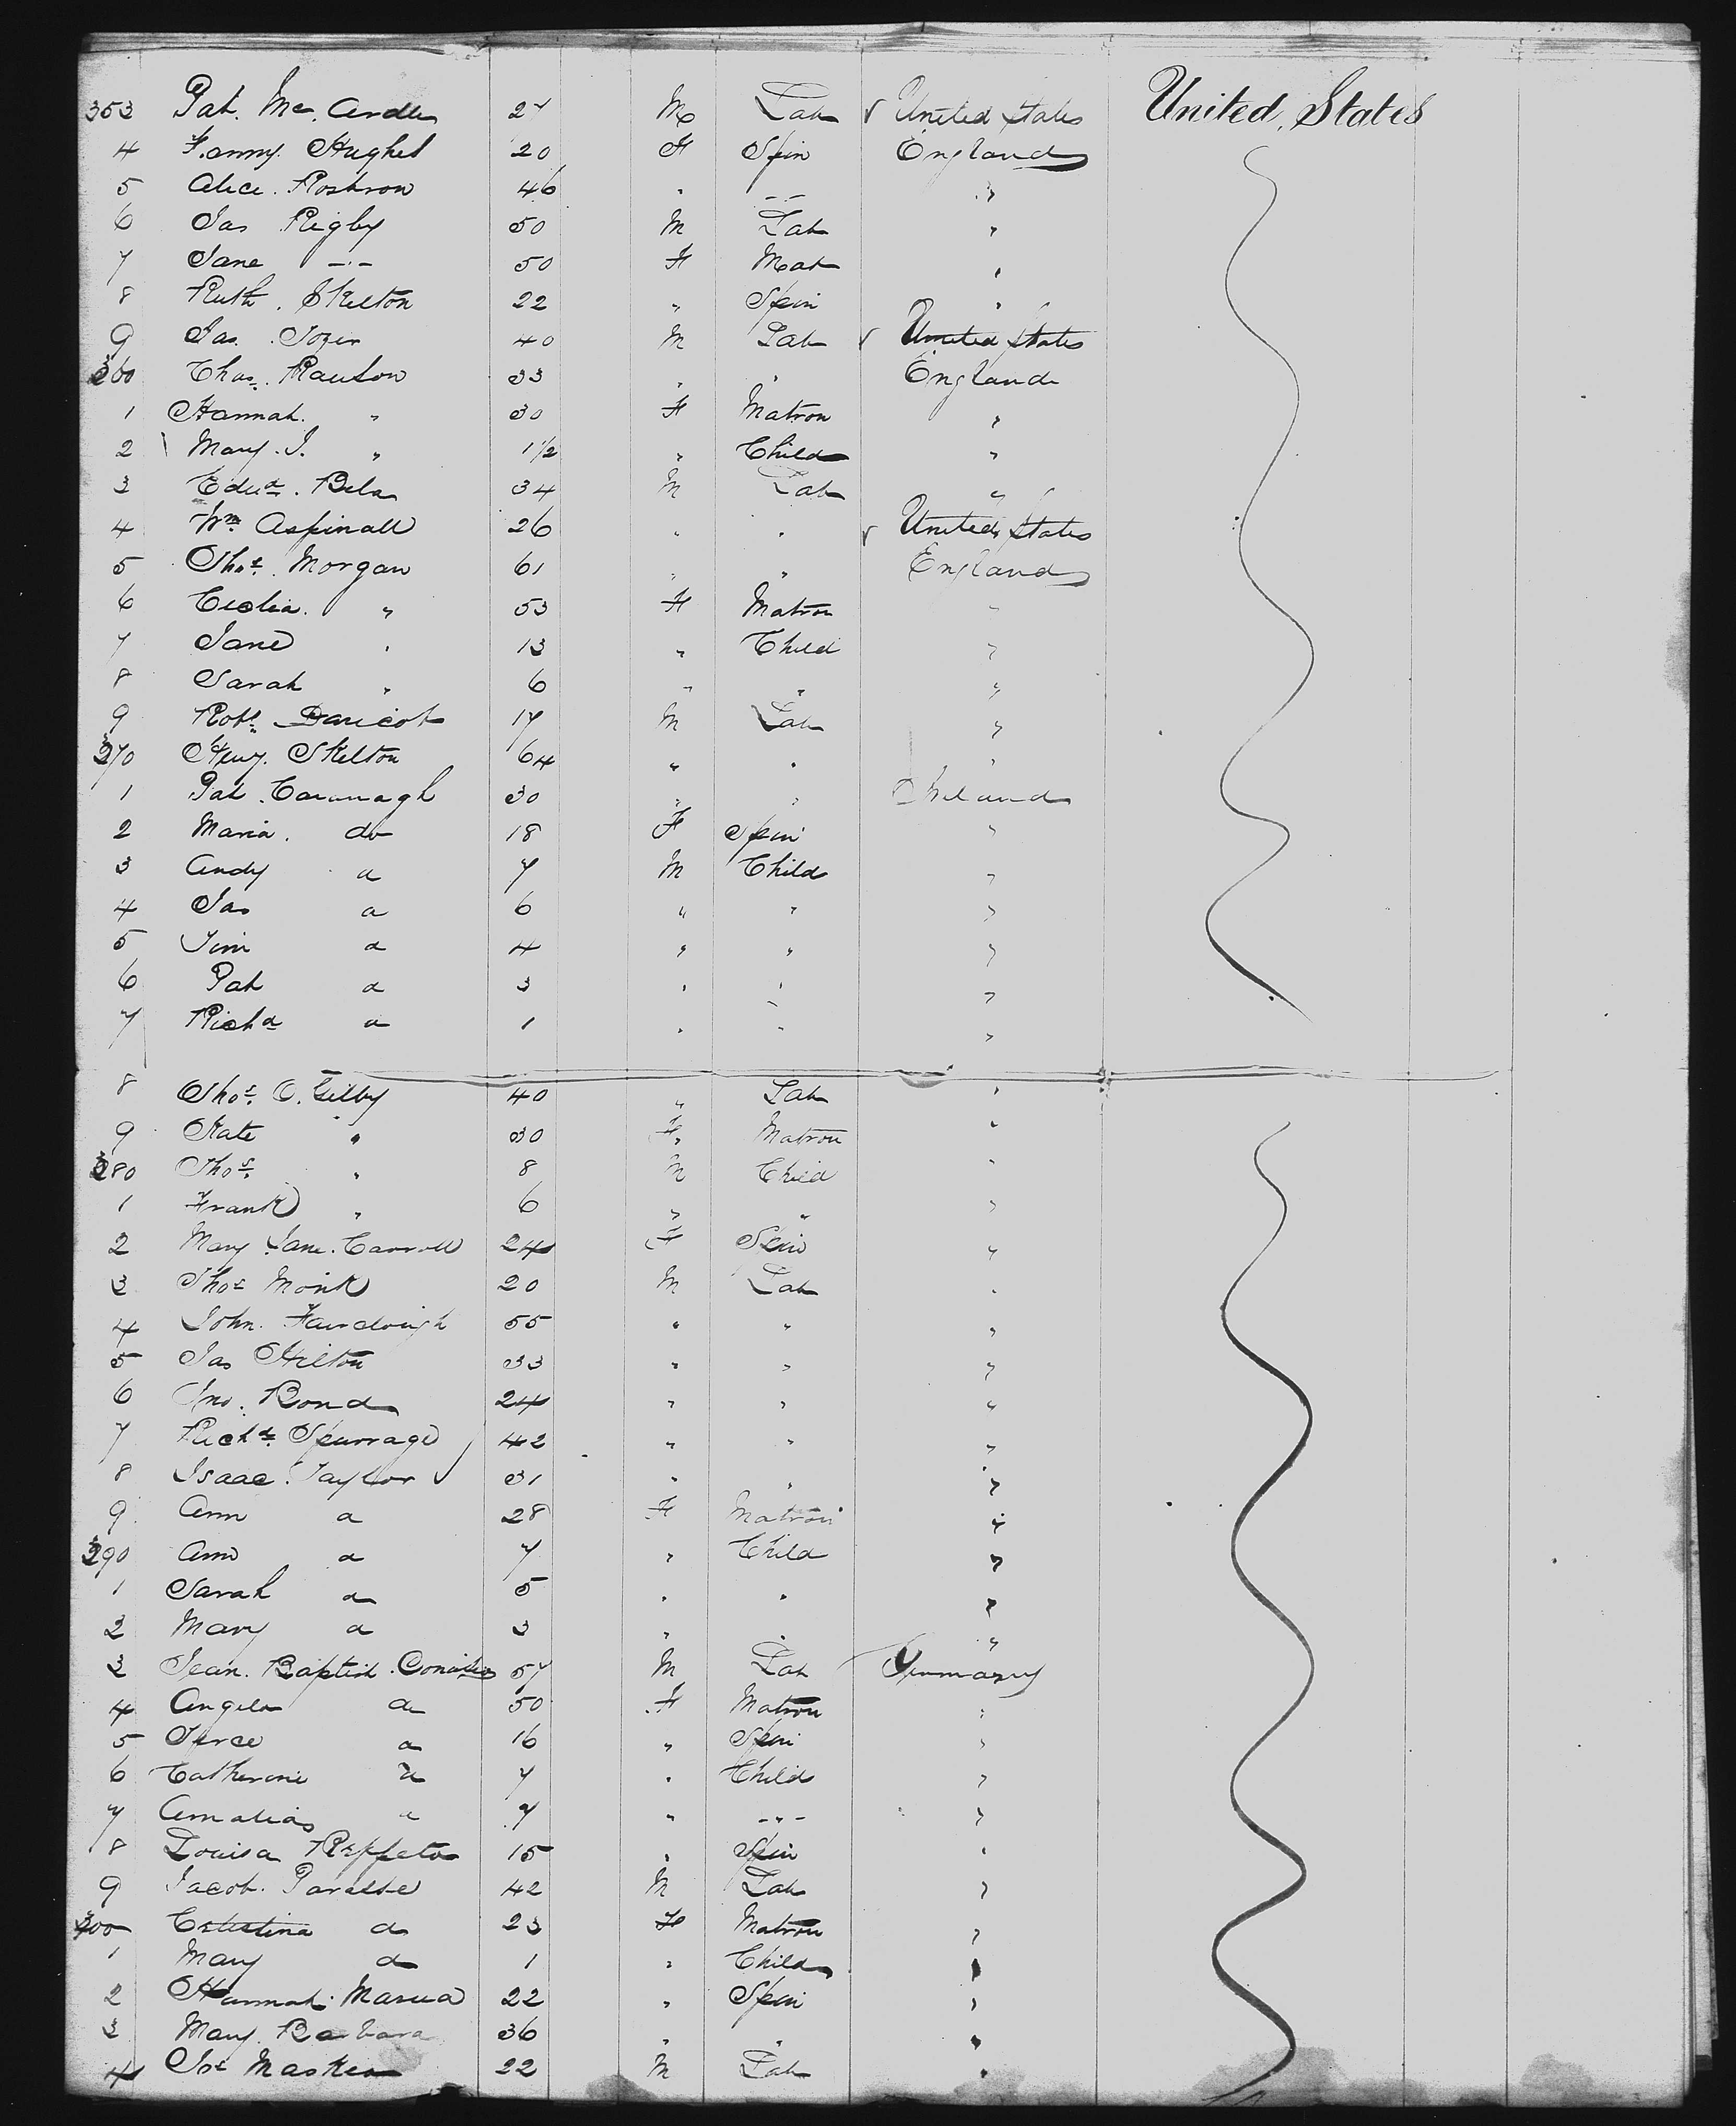 353 Pat. Mc. Ardle 27 M Lab √ United States United States
4 Fanny. Hughes 20 F Spin England
5 Alice. Rostron 46 " -- "
6 Jas Rigby 50 M Lab "
7 Jane -"- 50 F Mat "
8 Ruth. Skelton 22 " Spin "
9 Jas. Tozer 40 M Lab √ United States
360 Chas. Rawson 33 " " England
1 Hannah. " 30 F Matron "
2 Mary. J. " 1 1/2 " Child "
3 Edwd. 34 M Lab "
4 Wm. Aspinall 26 " " √ United States
5 Thos. Morgan 61 " " England
6 Cecilia. " 53 F Matron "
7 Jane " 13 " Child "
8 Sarah " 6 " " "
9 Robt. 17 M Lab "
370 Henry. Skelton 64 " " "
1 Pat. Cavanagh 30 " " Ireland
2 Maria. do 18 F Spin "
3 Andy d 7 M Child "
4 Jas d 6 " " "
5 Tim d 4 " " "
6 Pat d 3 " " "
7 Richd d 1 " " "
8 Thos. O. Gilby 40 " Lab "
9 Kate " 30 F Matron "
380 Thos. " 8 M Child "
1 Frank " 6 " " "
2 Mary Jane. Carroll 24 F Spin "
3 Thos Monk 20 M Lab "
4 John. Fairclough 55 " " "
5 Jas Hilton 33 " " "
6 Jno. Bond 24 " " "
7 Richd. Spurrage 42 " " "
8 Isaac. Taylor 31 " " "
9 Ann d 28 F Matron "
390 Ann d 7 " Child "
1 Sarah d 5 " " "
2 Mary d 3 " " "
3 Jean. Baptist. 57 M Lab Germany
4 Angela do 50 F Matron "
5 d 16 " Spin "
6 Catherine d 7 " Child "
7 Amalia d 7 " -"- "
8 Louisa 15 " Spin "
9 Jacob. 42 M Lab "
400 d 23 F Matron "
1 Mary d 1 " Child "
2 Hannah. 22 " Spin "
3 Mary. Barbara 36 " " "
4 22 M Lab "